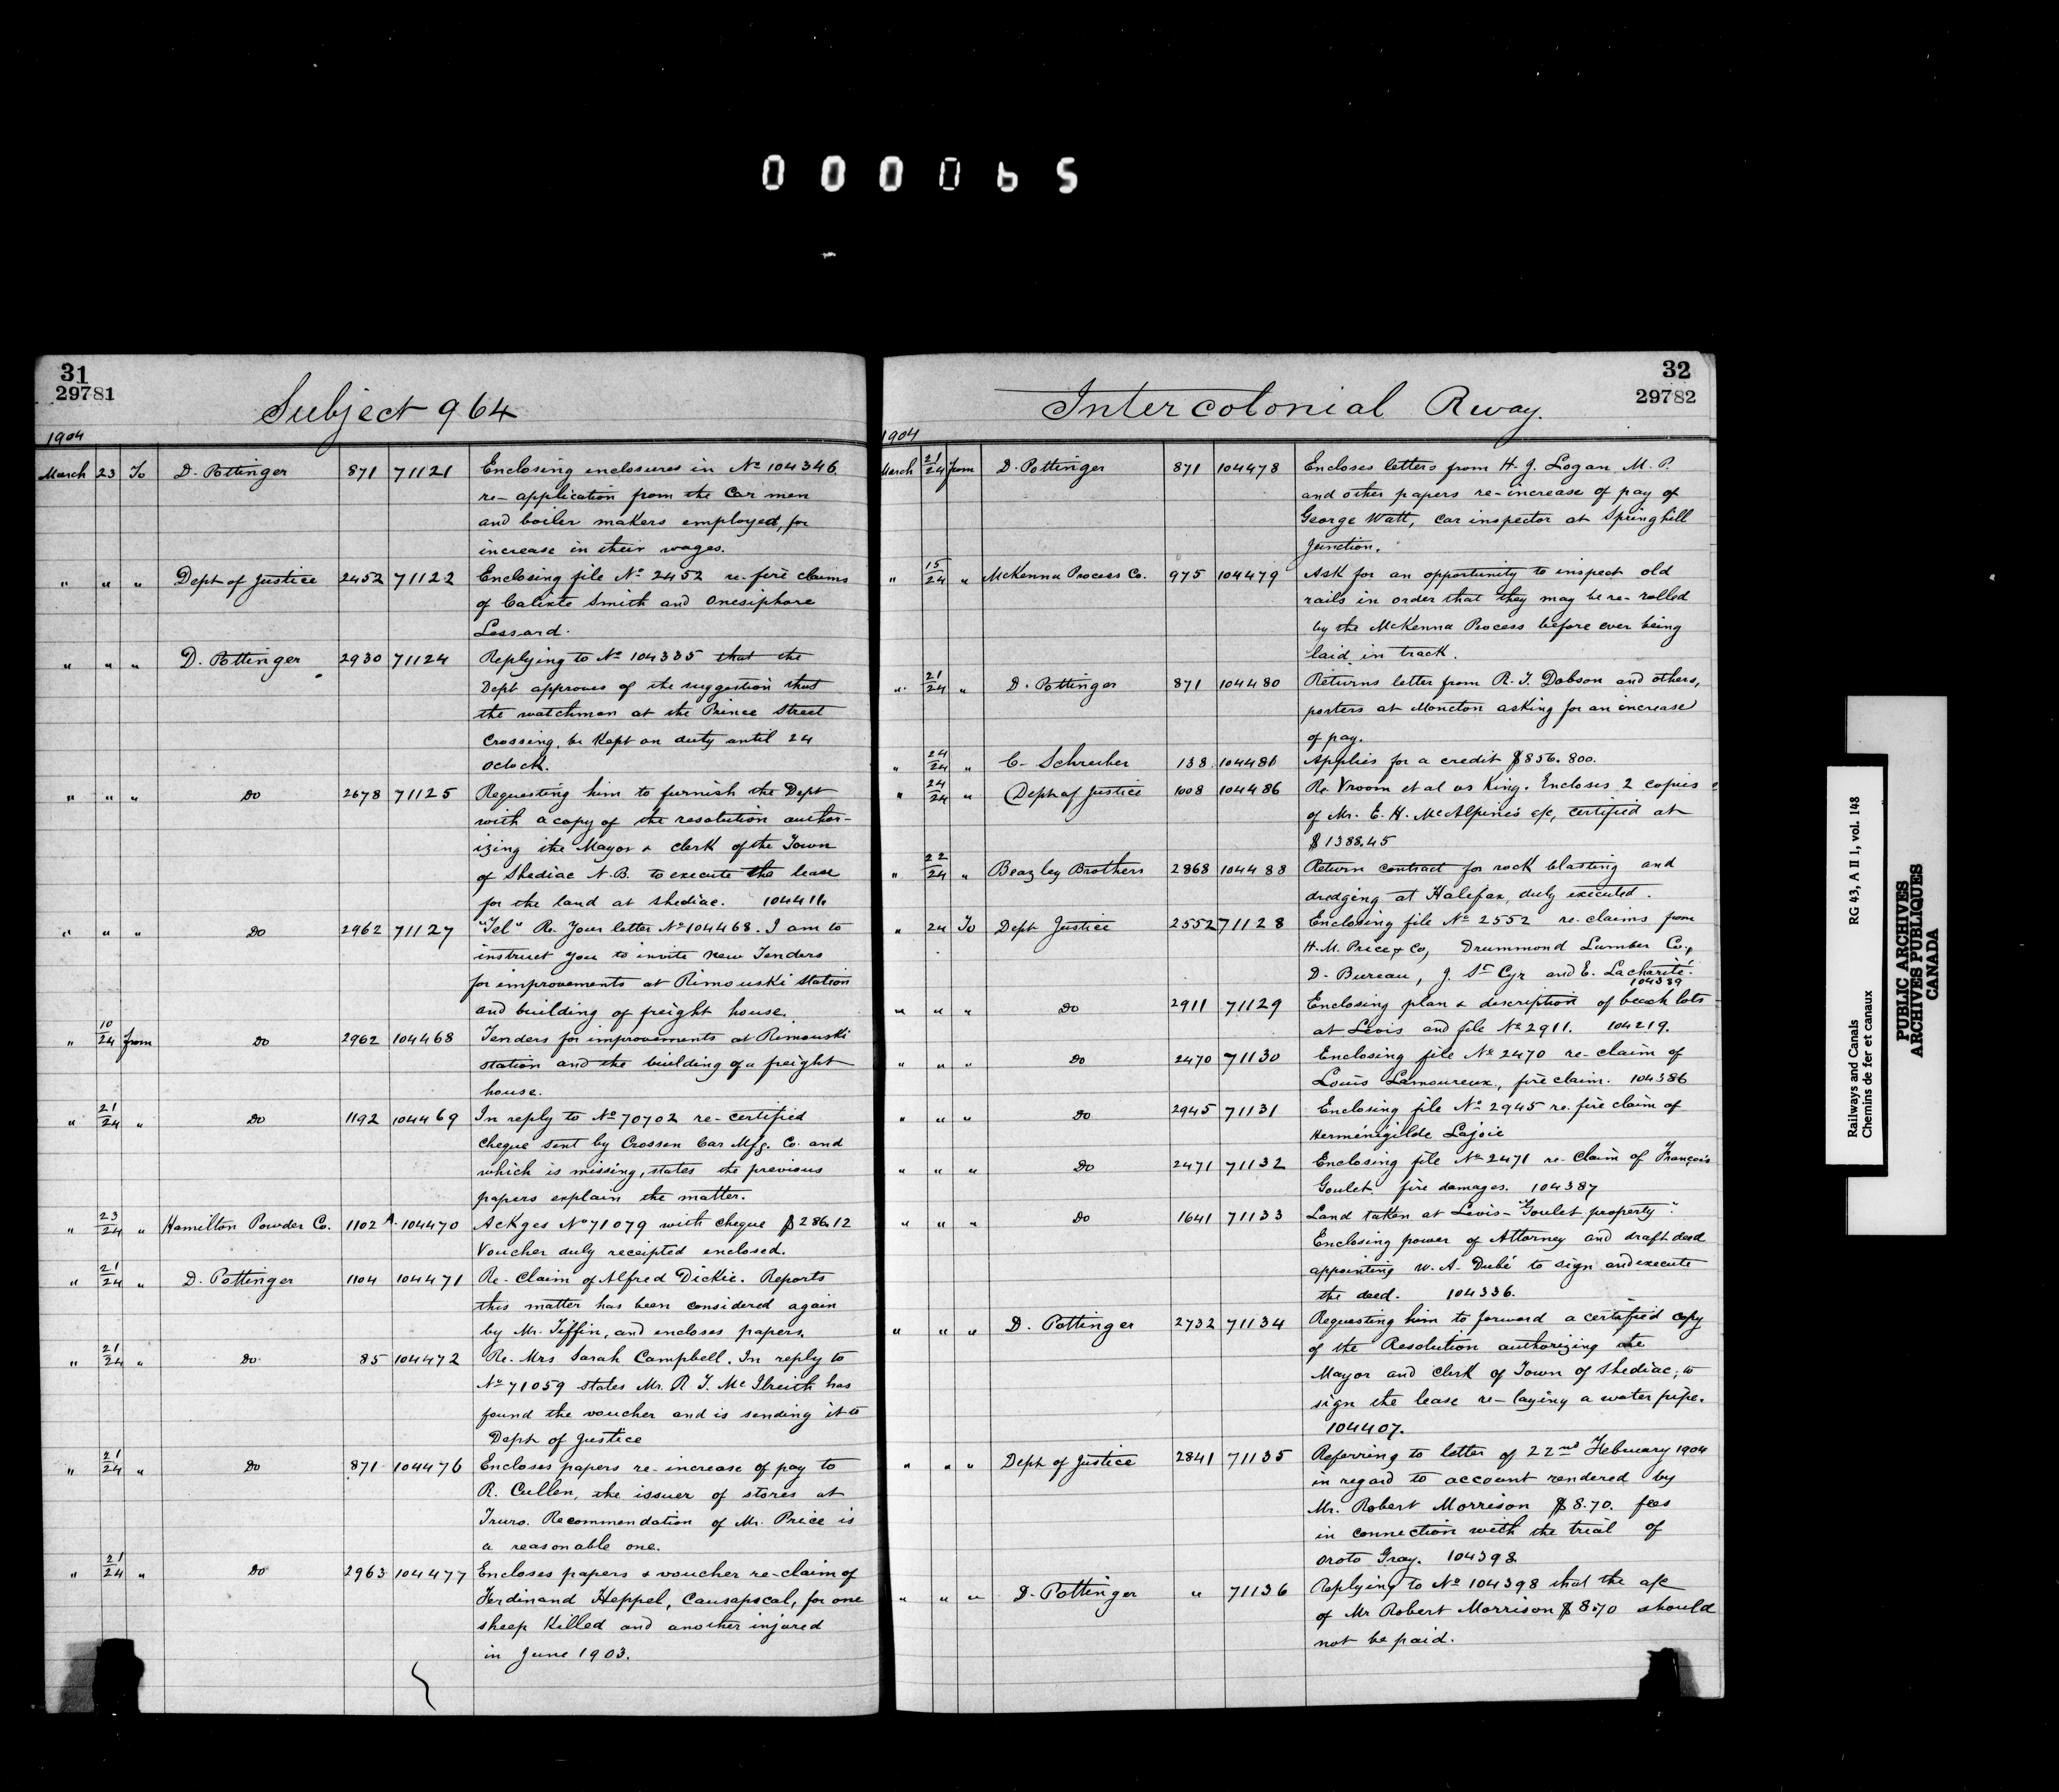 000065
31
29781
Subject 964
1904
March 23 To D. Pottinger 871 71121 Enclosing enclosures in No 104346
re-application from the Car men
and boiler makers employed, for
increase in their wages.
" " " Dept of Justice 2452 71122 Enclosing file No 2452 re-fire claims
of Calixte Smith and Onesiphore
Lessard.
" " " D. Pottinger 2930 71124 Replying to No 104335 that the
Dept approves of the suggestion that
the watchman at the Prince Street
Crossing, be Kept on duty until 24
oclock.
" " " Do 2678 71125 Requesting him to furnish the Dept
with a copy of the resolution author-
izing the Mayor & clerk of the Town
of Shediac N.B. to execute the lease
for the land at Shediac. 104411
" " " Do 2962 71127 "Tel" Re. Your letter No 104468. I am to
instruct you to invite new Tenders
for improvements at Rimouski station
and building of freight house.
" 10/24 from Do 2962 104468 Tenders for improvements at Rimouski
station and the building of a freight
house.
" 21/24 " Do 1192 104469 In reply to No 70702 re-certified
cheque sent by Crossen Car Mfg. Co. and
which is missing, states the previous
papers explain the matter.
" 23/24 " Hamilton Powder Co. 1102 A. 104470 Ackges No 71079 with cheque $286.12
Voucher duly receipted enclosed.
" 21/24 " D. Pottinger 1104 104471 Re-Claim of Alfred Dickie. Reports
this matter has been considered again
by Mr. Tiffin, and encloses papers.
" 21/24 " Do 85 104472 Re. Mrs Sarah Campbell. In reply to
No 71059 states Mr. R. T. McIlreith has
found the voucher and is sending it to
Dept of Justice
" 21/24 " Do 871 104476 Encloses papers re-increase of pay to
R. Cullen, the issuer of stores at
Truro. Recommendation of Mr. Price is
a reasonable one.
" 21/24 " Do 2963 104477 Encloses papers & voucher re-claim of
Ferdinand Heppel, Causapscal, for one
sheep Killed and another injured
in June 1903.
32
29782
Intercolonial Rway.
1904
March 21/24 from D. Pottinger 871 104478 Encloses letters from H. J. Logan M. P.
and other papers re-increase of pay of
George Watt, car inspector at Springhill
Junction.
" 15/24 " McKenna Process Co. 975 104479 Ask for an opportunity to inspect old
rails in order that they may be re-rolled
by the McKenna Process before ever being
laid in track.
" 21/24 " D. Pottinger 871 104480 Returns letter from R. T. Dobson and others,
porters at Moncton asking for an increase
of pay.
" 24/24 " C- Schreiber 138 104481 Applies for a credit $856.800.
" 24/24 " Dept of Justice 1008 104486 Re. Vroom et al vs King. Encloses 2 copies
of Mr. E. H. McAlpine's a/c, certified at
$1388.45
" 22/24 " Beazley Brothers 2868 104488 Return contract for rock blasting and
dredging at Halifax, duly executed.
" 24 To Dept Justice 2552 71128 Enclosing file No 2552 re-claims from
H. M. Price & Co, Drummond Lumber Co.,
D. Bureau, J. St Cyr and E. Lacharité.
104389
" " " Do 2911 71129 Enclosing plan & description of beach lots
at Levis and file No 2911. 104219.
" " " Do 2470 71130 Enclosing file No 2470 re-claim of
Louis Lamoureux, fire claim. 104386
" " " Do 2945 71131 Enclosing file No 2945 re. fire claim of
Herménégilde Lajoie
" " " Do 2471 71132 Enclosing file No 2471 re-Claim of François
Goulet. fire damages. 104387
" " " Do 1641 71133 Land taken at Levis-"Goulet property".
Enclosing power of Attorney and draft deed
appointing W. A. Dubé to sign and execute
the deed. 104336.
" " " D. Pottinger 2732 71134 Requesting him to forward a certified copy
of the Resolution authorizing the
Mayor and Clerk of Town of Shediac, to
sign the lease re-laying a water pipe.
104407.
" " " Dept of Justice 2841 71135 Referring to letter of 22nd February 1904
in regard to account rendered by
Mr. Robert Morrison $8.70. fees
in connection with the trial of
Oroto Gray. 104398
" " " D. Pottinger " 71136 Replying to No 104398 that the a/c
of Mr Robert Morrison $8.70 should
not be paid.
Railways and Canals RG 43, A II 1, vol. 148
Chemins de fer et canaux
PUBLIC ARCHIVES
ARCHIVES PUBLIQUES
CANADA